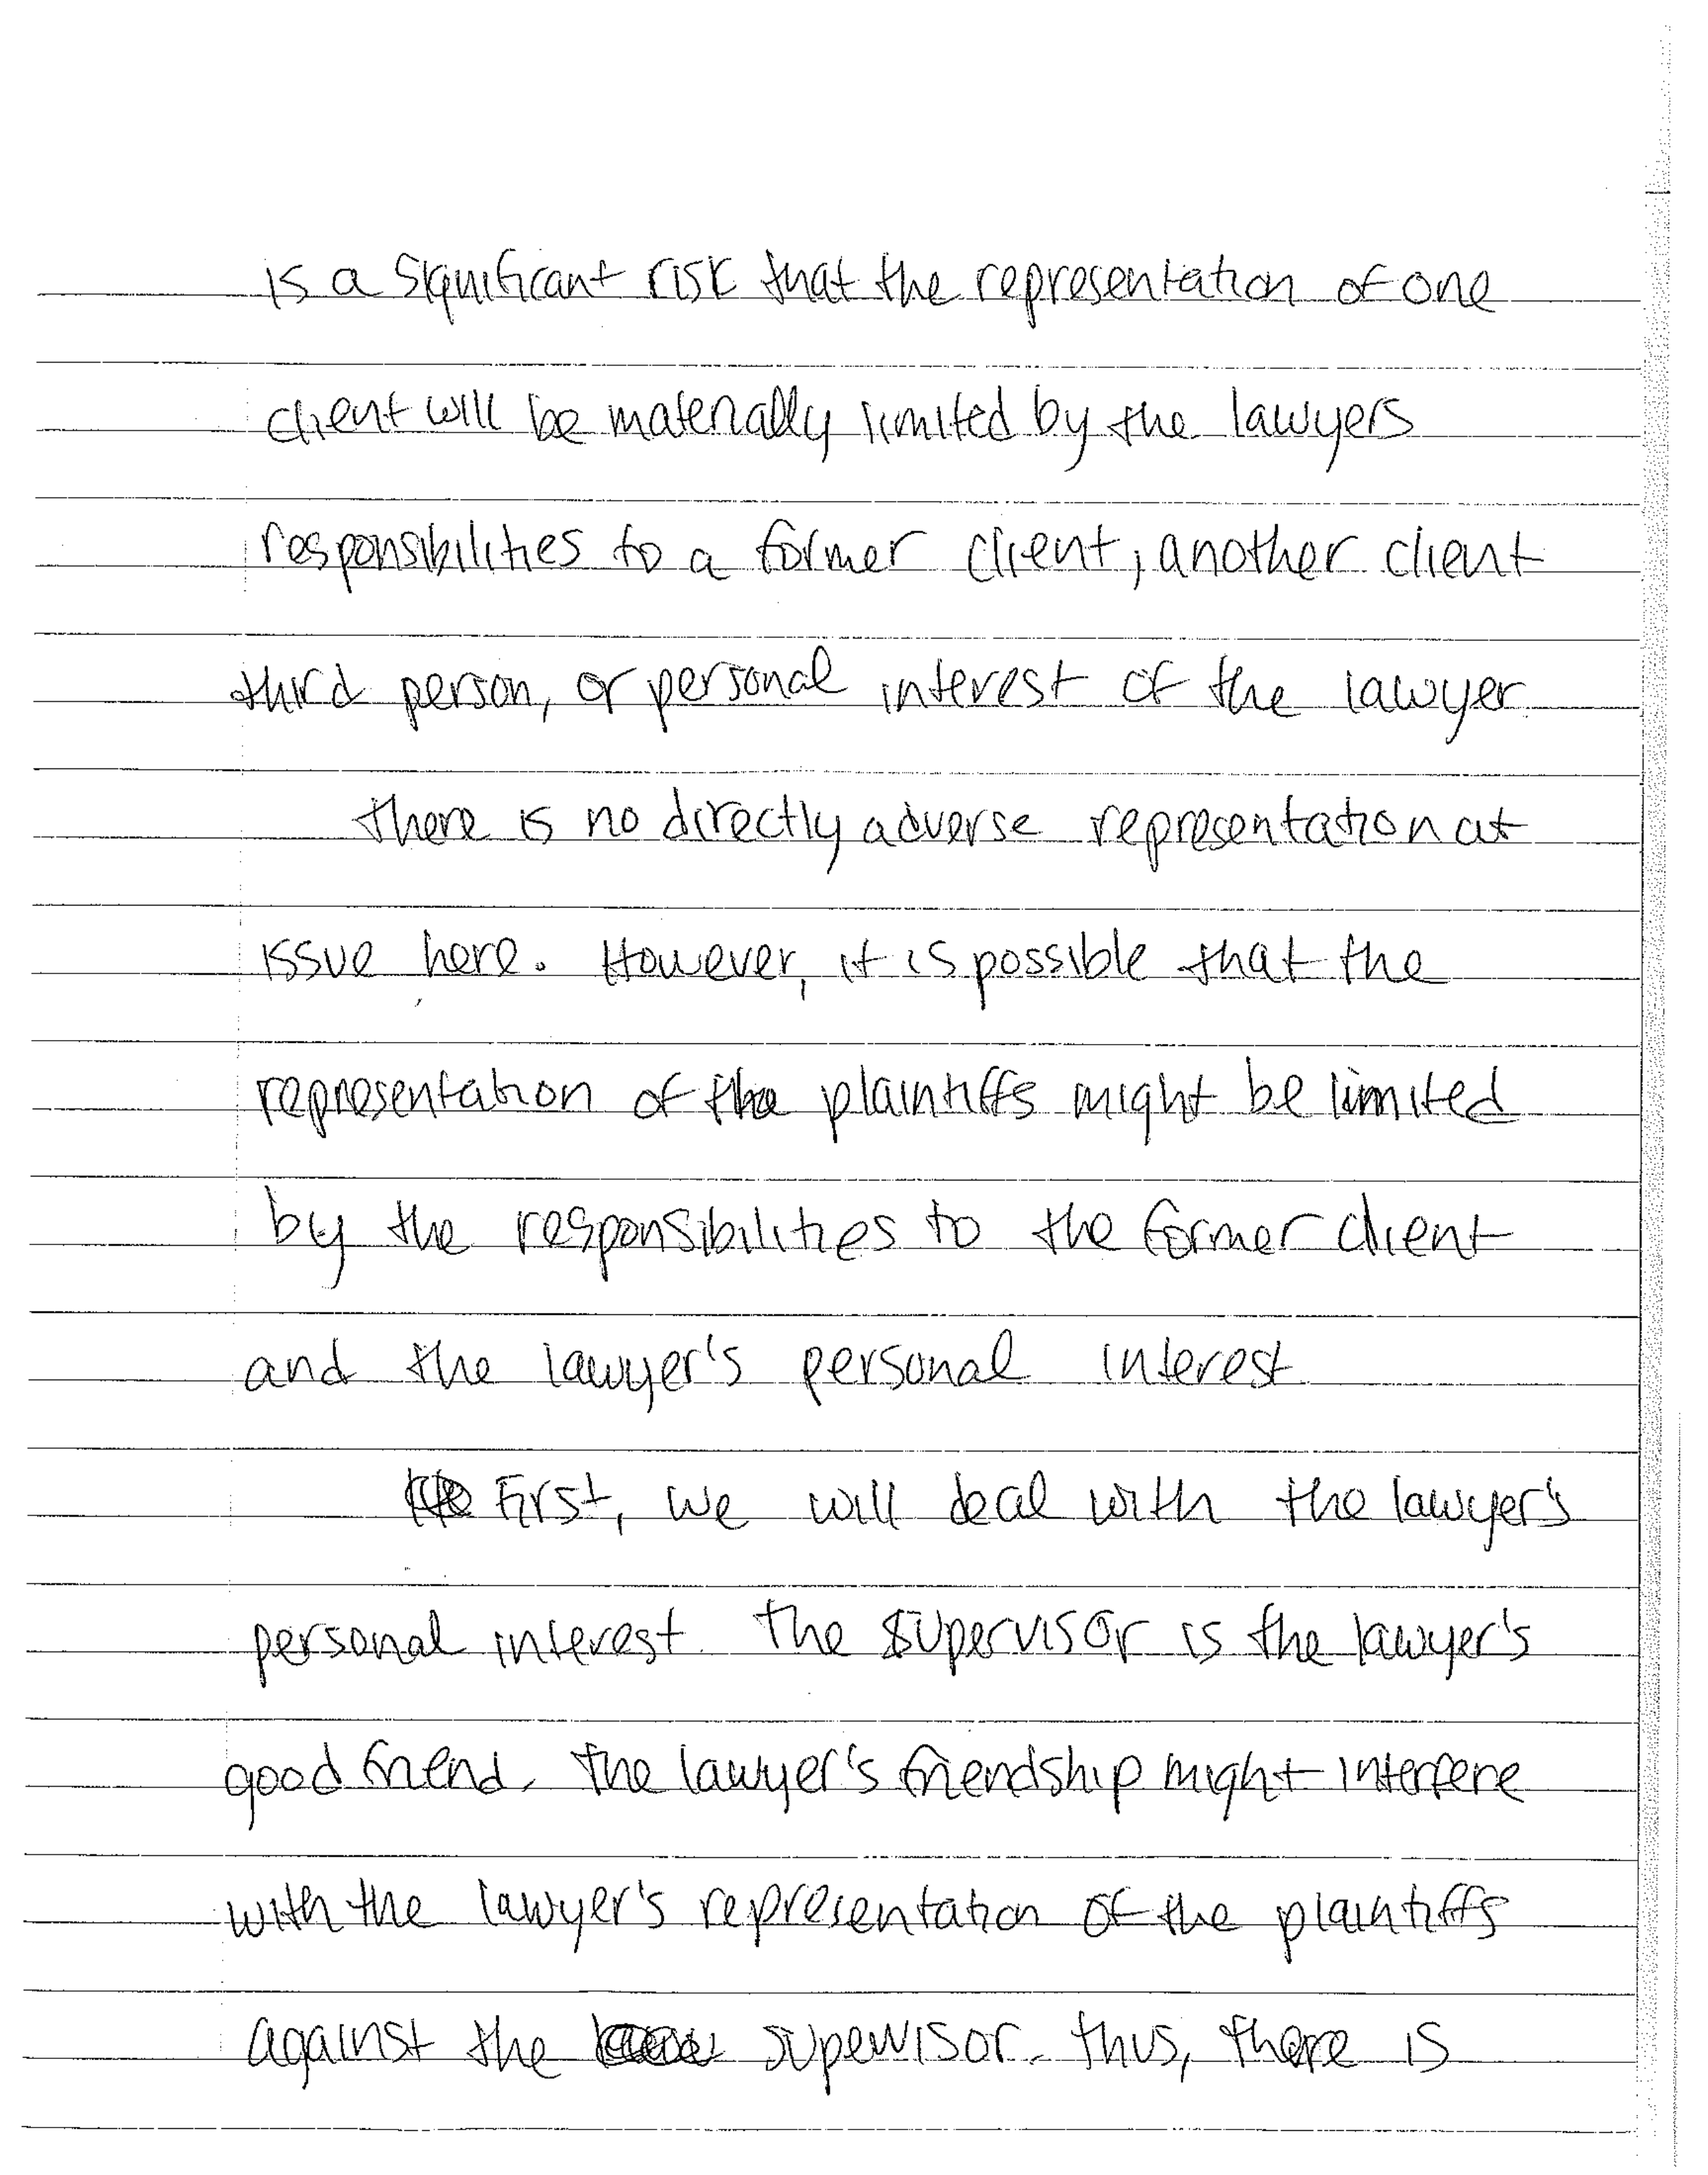 is a significant risk that the representation of one
client will be materially limited by the lawyers
responsibilities to a former client, another client
third person, or personal interest of the lawyer
there is no directly adverse representation at
issue here. However, it is possible that the
representation of the plaintiffs might be limited
by the responsibilities to the former client
and the lawyer's personal interest
First, we will deal with the lawyer's
personal interest. The supervisor is the lawyer's
good friend. The lawyer's friendship might interfere
with the lawyer's representation of the plaintiffs
against the supervisor. Thus, there is